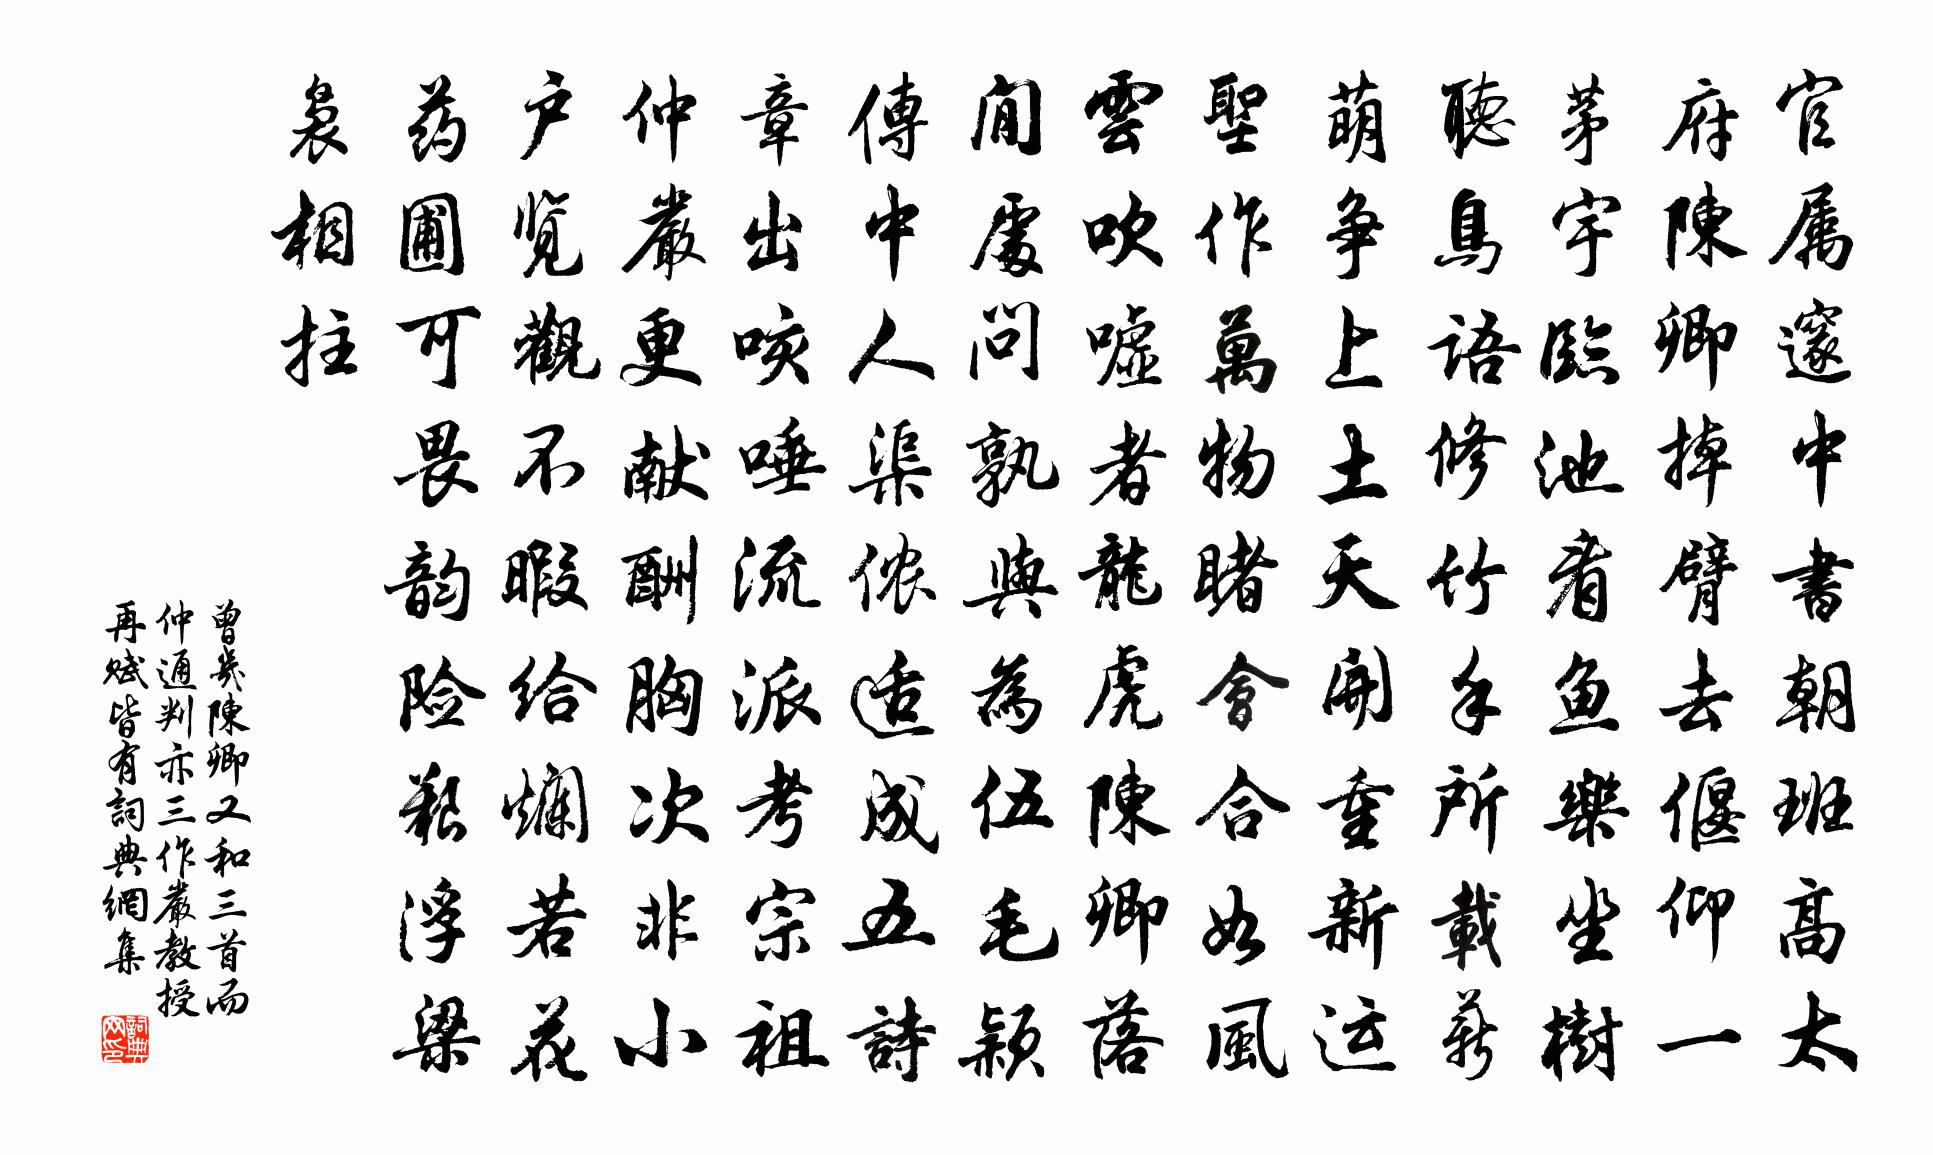 官属邃中書朝班高太
府陳卿掉臂去偃仰一
茅宇臨池看鱼樂坐樹
聽鳥語修竹手所載新
萌争上土天開重新运
聖作萬物睹會合如風
雲吹噓者龍虎陳卿落
閒處問孰與為伍毛颖
傳中人渠侬适成五詩
章出咳唾流派考宗祖
仲嚴更献酬胸次非小
户览觀不暇给爛若花
药圃可畏韵险艱浮梁
袅相拄
曾幾陳卿又和三首而
仲通判亦三作嚴教授
再赋皆有詞典網集
詞典网印